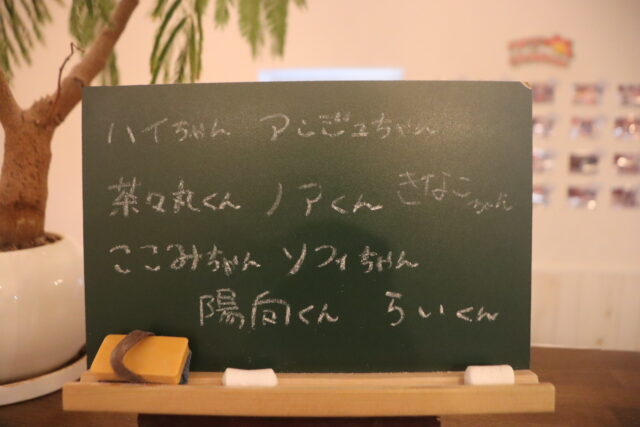 ハイちゃん アンジュちゃん
茶々丸くん ノアくん きなこちゃん
ここみちゃん ソフィちゃん
陽向くん らいくん